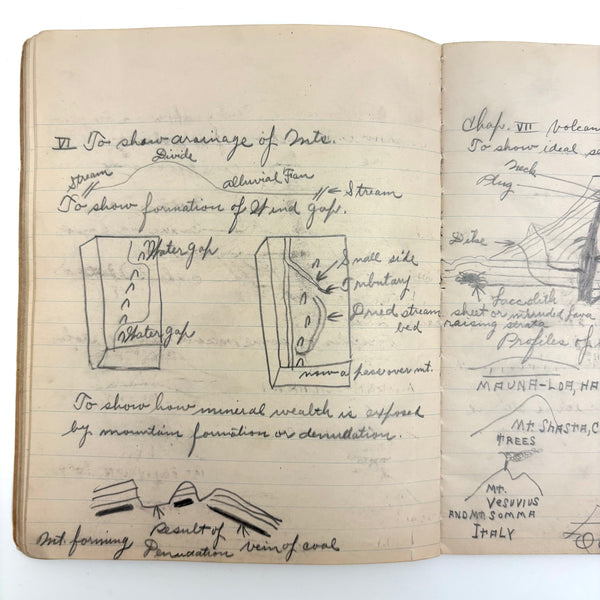 VI To show drainage of Mts.
Divide
Stream
Alluvial Fan
Stream
To show formation of Wind Gap.
Water gap
Water gap
Small side
Tributary
Dried stream
bed
now a pass over mt.
To show how mineral wealth is exposed
by mountain formation or denudation.
Mt. forming
Result of
Denudation
vein of coal
Chap. VII Volcan
To show ideal se
Neck
Plug.
Dike
Laccolith
sheet or intruded lava
raising strata
Profiles of
MAUNA-LOA, HA
Mt. SHASTA, C
TREES
MT.
VESUVIUS
AND MT. SOMMA
ITALY